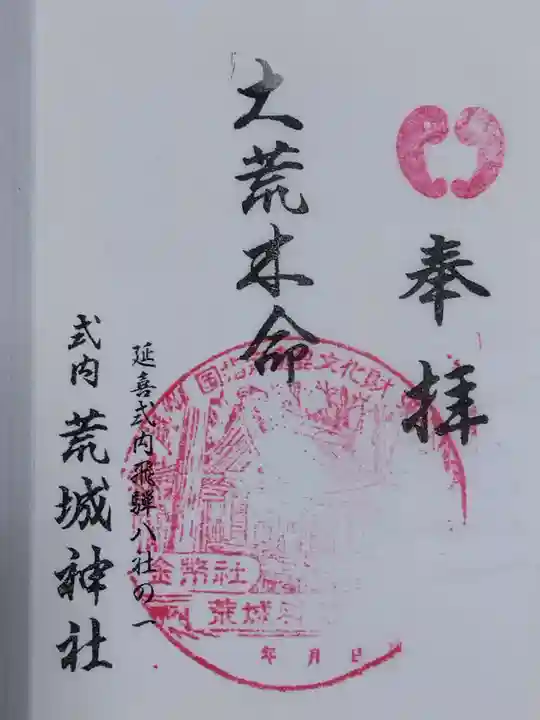 奉拝
大荒木命
延喜式内飛騨八社の一
式内 荒城神社
国指定重要文化財
金幣社
荒城
年 月 日